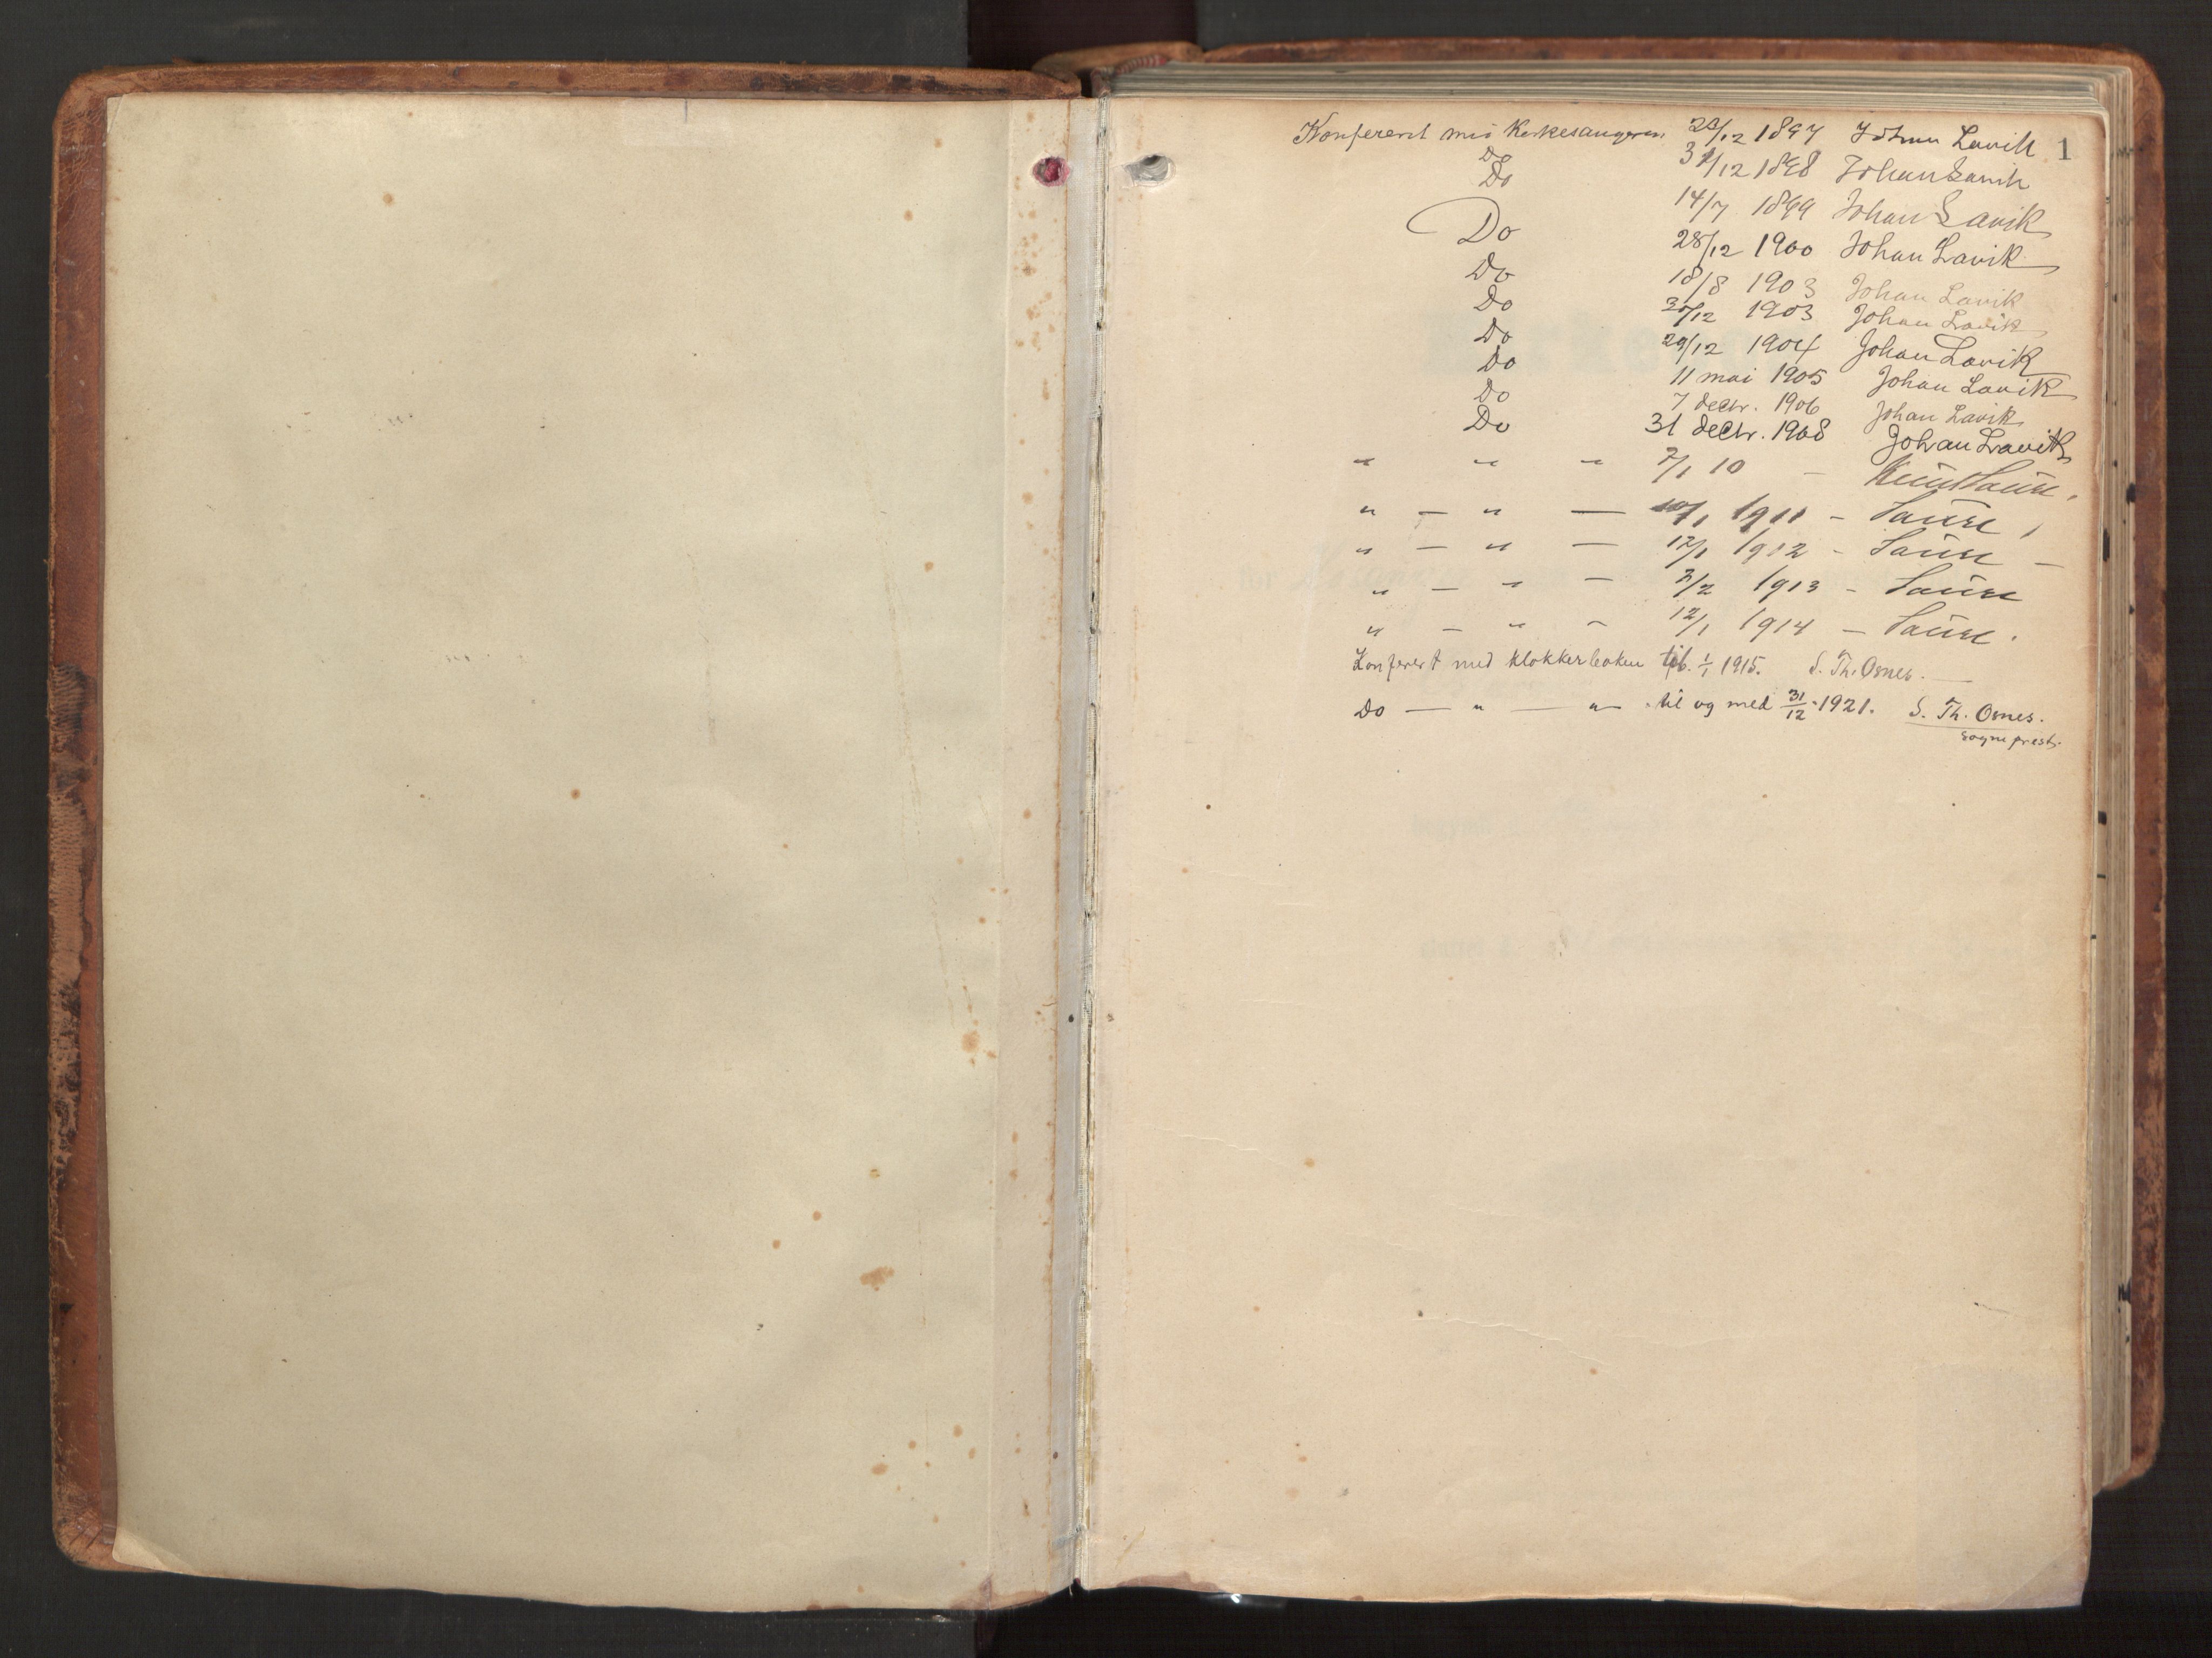 Konfereret med Kirkesangeren 29/12 1897 Johan Lavik 1
Do 31/12 1898 Johan Lavik
Do 14/7 1899 Johan Lavik
Do 28/12 1900 Johan Lavik
Do 18/8 1903 Johan Lavik
Do 30/12 1903 Johan Lavik
Do 29/12 1904 Johan Lavik
Do 11 mai 1905 Johan Lavik
Do 7 decbr. 1906 Johan Lavik
Do 31 decbr. 1908 Johan Lavik
" " " 7/1 10 –
" — " — 1911 – Saure
" — " — 12/1 1912 – Saure –
" — " — 3/2 1913 – Saure
" — " – 12/1 1914 – Saure.
Konferert med klokkerboken 1/1 1915. S. Th. Osnes. —
Do — " — " – til og med 31/12 1921. S. Th. Osnes.
sogneprest.